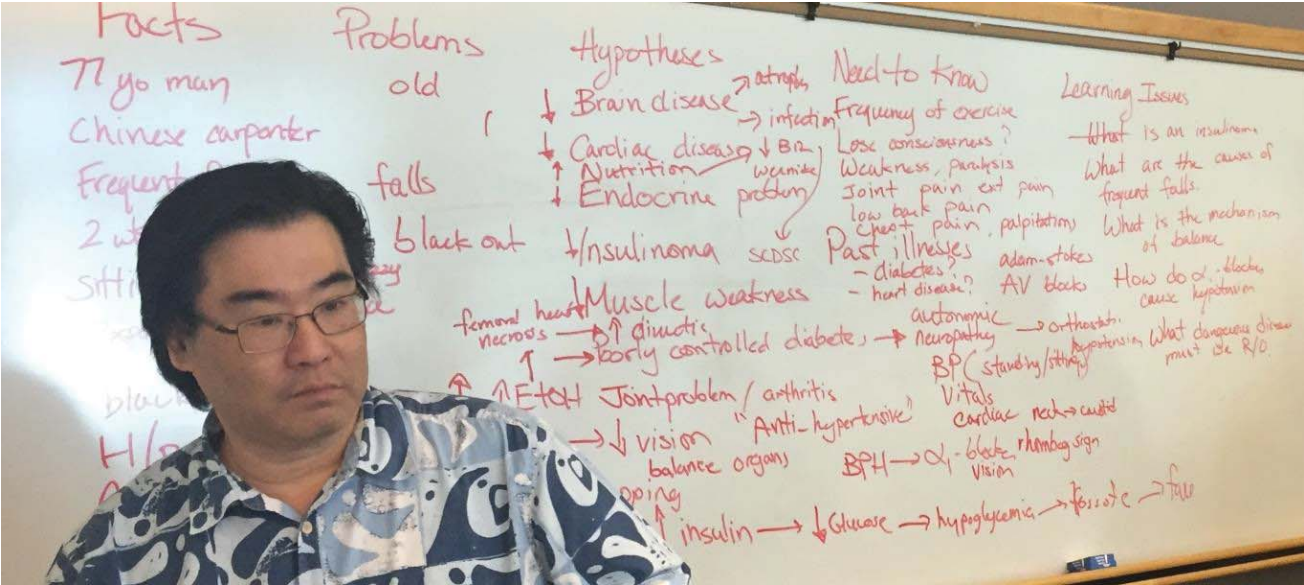 Facts
77 yo man
Chinese carpenter
Frequent
2
Sitti
black
H/
Problems
old
falls
black out
Hypotheses
↓ Brain disease → atrophy
→ infection
↓ Cardiac disease ↓ B12
↑ Nutrition
↓ Endocrine problem
↓ Insulinoma SCDSC
↓ Muscle weakness
femoral head necrosis → ↑ diuretis
↑ → borly controlled diabetes → autonomic neuropathy → orthostati. hypotension
↑ ↑ EtOH Joint problem / arthritis
"Anti-hypertensive"
→ ↓ vision
balance organs
pping
↑ insulin → ↓ Glucose → hypoglycemia →
Need to know
Frequency of exercise
Lose consciousness?
Weakness, paralysis
Joint pain ext pain
low back pain
chest pain, palpitations
Past illnesses adam-stokes
- diabetes? AV block
- heart disease?
BP (standing/sitting)
Vitals
cardiac neck → carotid
BPH → α1-blocker rhombag sign
vision
Learning Issues
What is an insulinoma
What are the causes of
frequent falls.
What is the mechanism
of balance
How do α1-blocker
cause hypotension
What dangerous disease
must we R/O